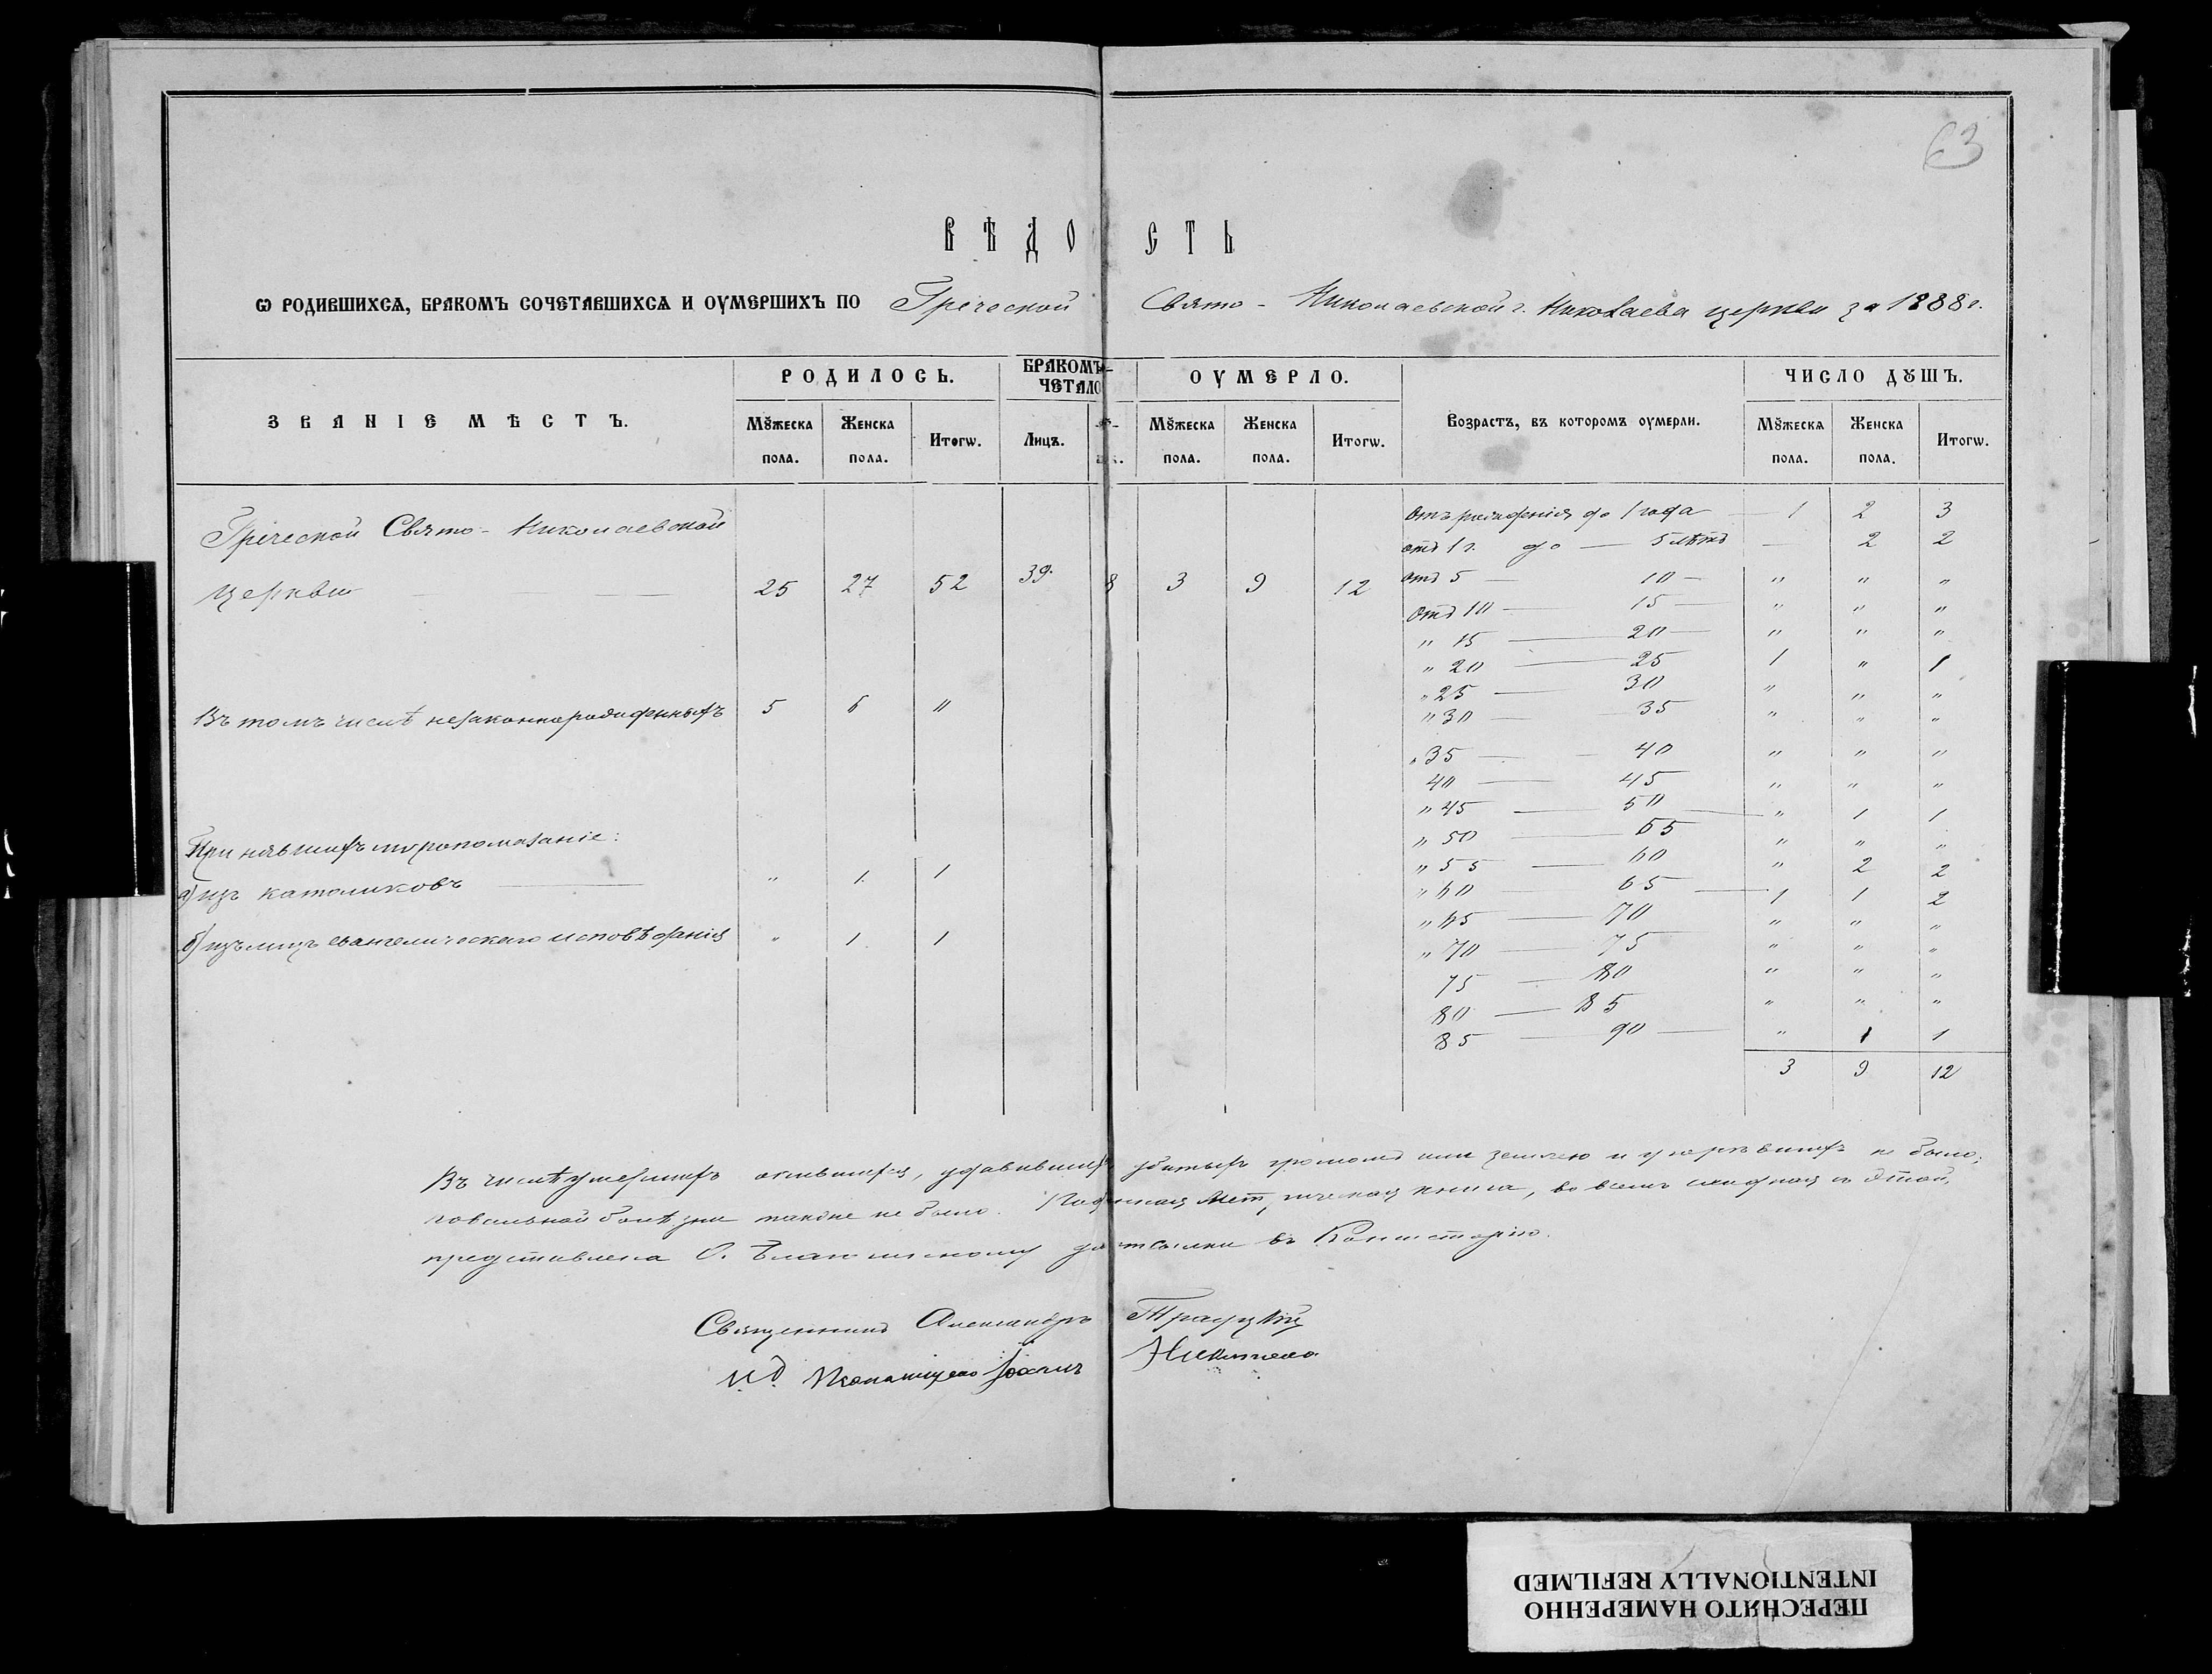 63
ВѢДОСТЬ
Ѡ РОДИВШИХСѦ, БРАКОМЪ СОЧЕТАВШИХСѦ И ОУМЕРШИХЪ ПО Греческой Свято - Николаевской г. Николаева церкви за 1888 г.
ЗВАНІЕ МѢСТЪ. РОДИЛОСЬ. БРАКОМЪ ЧЕТАЛО ОУМЕРЛО. Возрастъ, въ которомъ оумерли. ЧИСЛО ДꙊШЪ.
Мꙋжеска пола. Женска пола. Итогѡ. Лицъ. Мꙋжеска пола. Женска пола. Итогѡ. Мꙋжеска пола. Женска пола. Итогѡ.
Греческой Свято - Николаевской
церкви 25 27 52 39 8 3 9 12
Въ томъ числѣ незаконнорожденныхъ 5 6 "
Принявшихъ мѵропомазаніе:
а) изъ католиковъ " 1 1
б) изъ лицъ евангелическаго исповѣданія " 1 1
Отъ рожденія до 1 года — 1 2 3
отъ 1 г. до — 5 лѣтъ — 2 2
отъ 5 — 10 — " " "
Отъ 10 — 15 — " " "
" 15 — 20 — " " "
" 20 — 25 1 " 1
" 25 — 30 " " "
" 30 — 35 " " "
" 35 — 40 " " "
40 — 45 " " "
" 45 — 50 — " 1 1
" 50 — 55 " " "
" 55 — 60 " 2 2
" 60 — 65 — 1 1 2
" 65 — 70 " " "
" 70 — 75 " " "
75 — 80 " " "
80 — 85 " " "
85 — 90 — " 1 1
3 9 12
Въ числѣ умершихъ опившихся, удавившихъ убитыхъ громомъ или землею и не было;
повальной болѣзни также не было. книга, во всемъ сходная съ этой,
представлена О. Благочинному для отсылки въ Консисторію.
Священникъ Александръ
И. д. Псаломщика Іоаннъ
ПЕРЕСНЯТО НАМЕРЕННО
INTENTIONALLY REFILMED